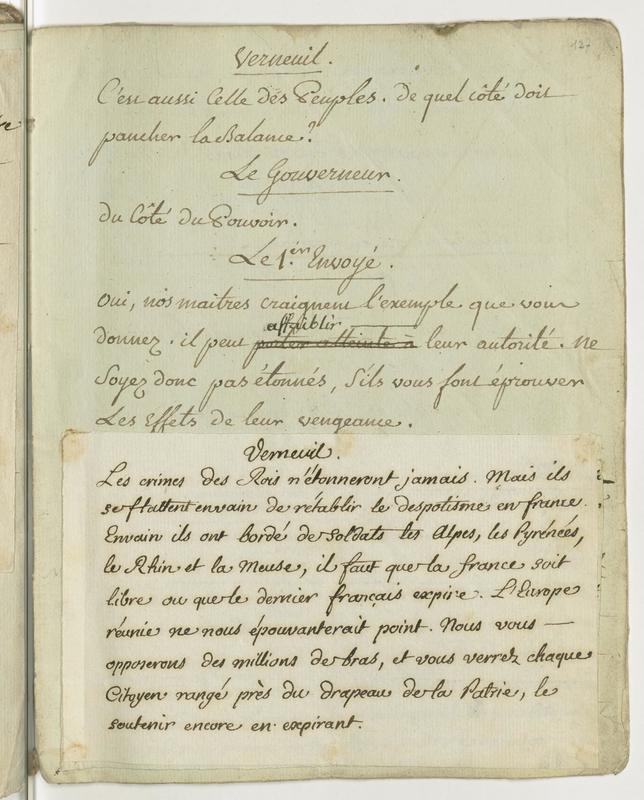 127
Verneuil.
C'est aussi Celle des Peuples. De quel côté doit
pancher la Balance?
Le Gouverneur.
du Côté du Pouvoir.
Le 1.er Envoyé.
Oui, nos maitres craignent l'exemple que vous
affaiblir
donnez. il peut porter atteinte à leur autorité. Ne
Soyez donc pas étonnés, s'ils vous font éprouver
Les Effets de leur vengeance.
Verneuil.
Les crimes des Rois n'étonneront jamais. Mais ils
se flattent envain de rétablir le despotisme en france.
Envain ils ont bordé de soldats les Alpes, les Pyrénées,
le Rhin et la Meuse, il faut que la france soit
libre ou que le dernier français expire. L'Europe
réunie ne nous épouvanterait point. Nous vous —
opposerons des millions de bras, et vous verrez chaque
Citoyen rangé près du drapeau de la Patrie, le
soutenir encore en expirant.